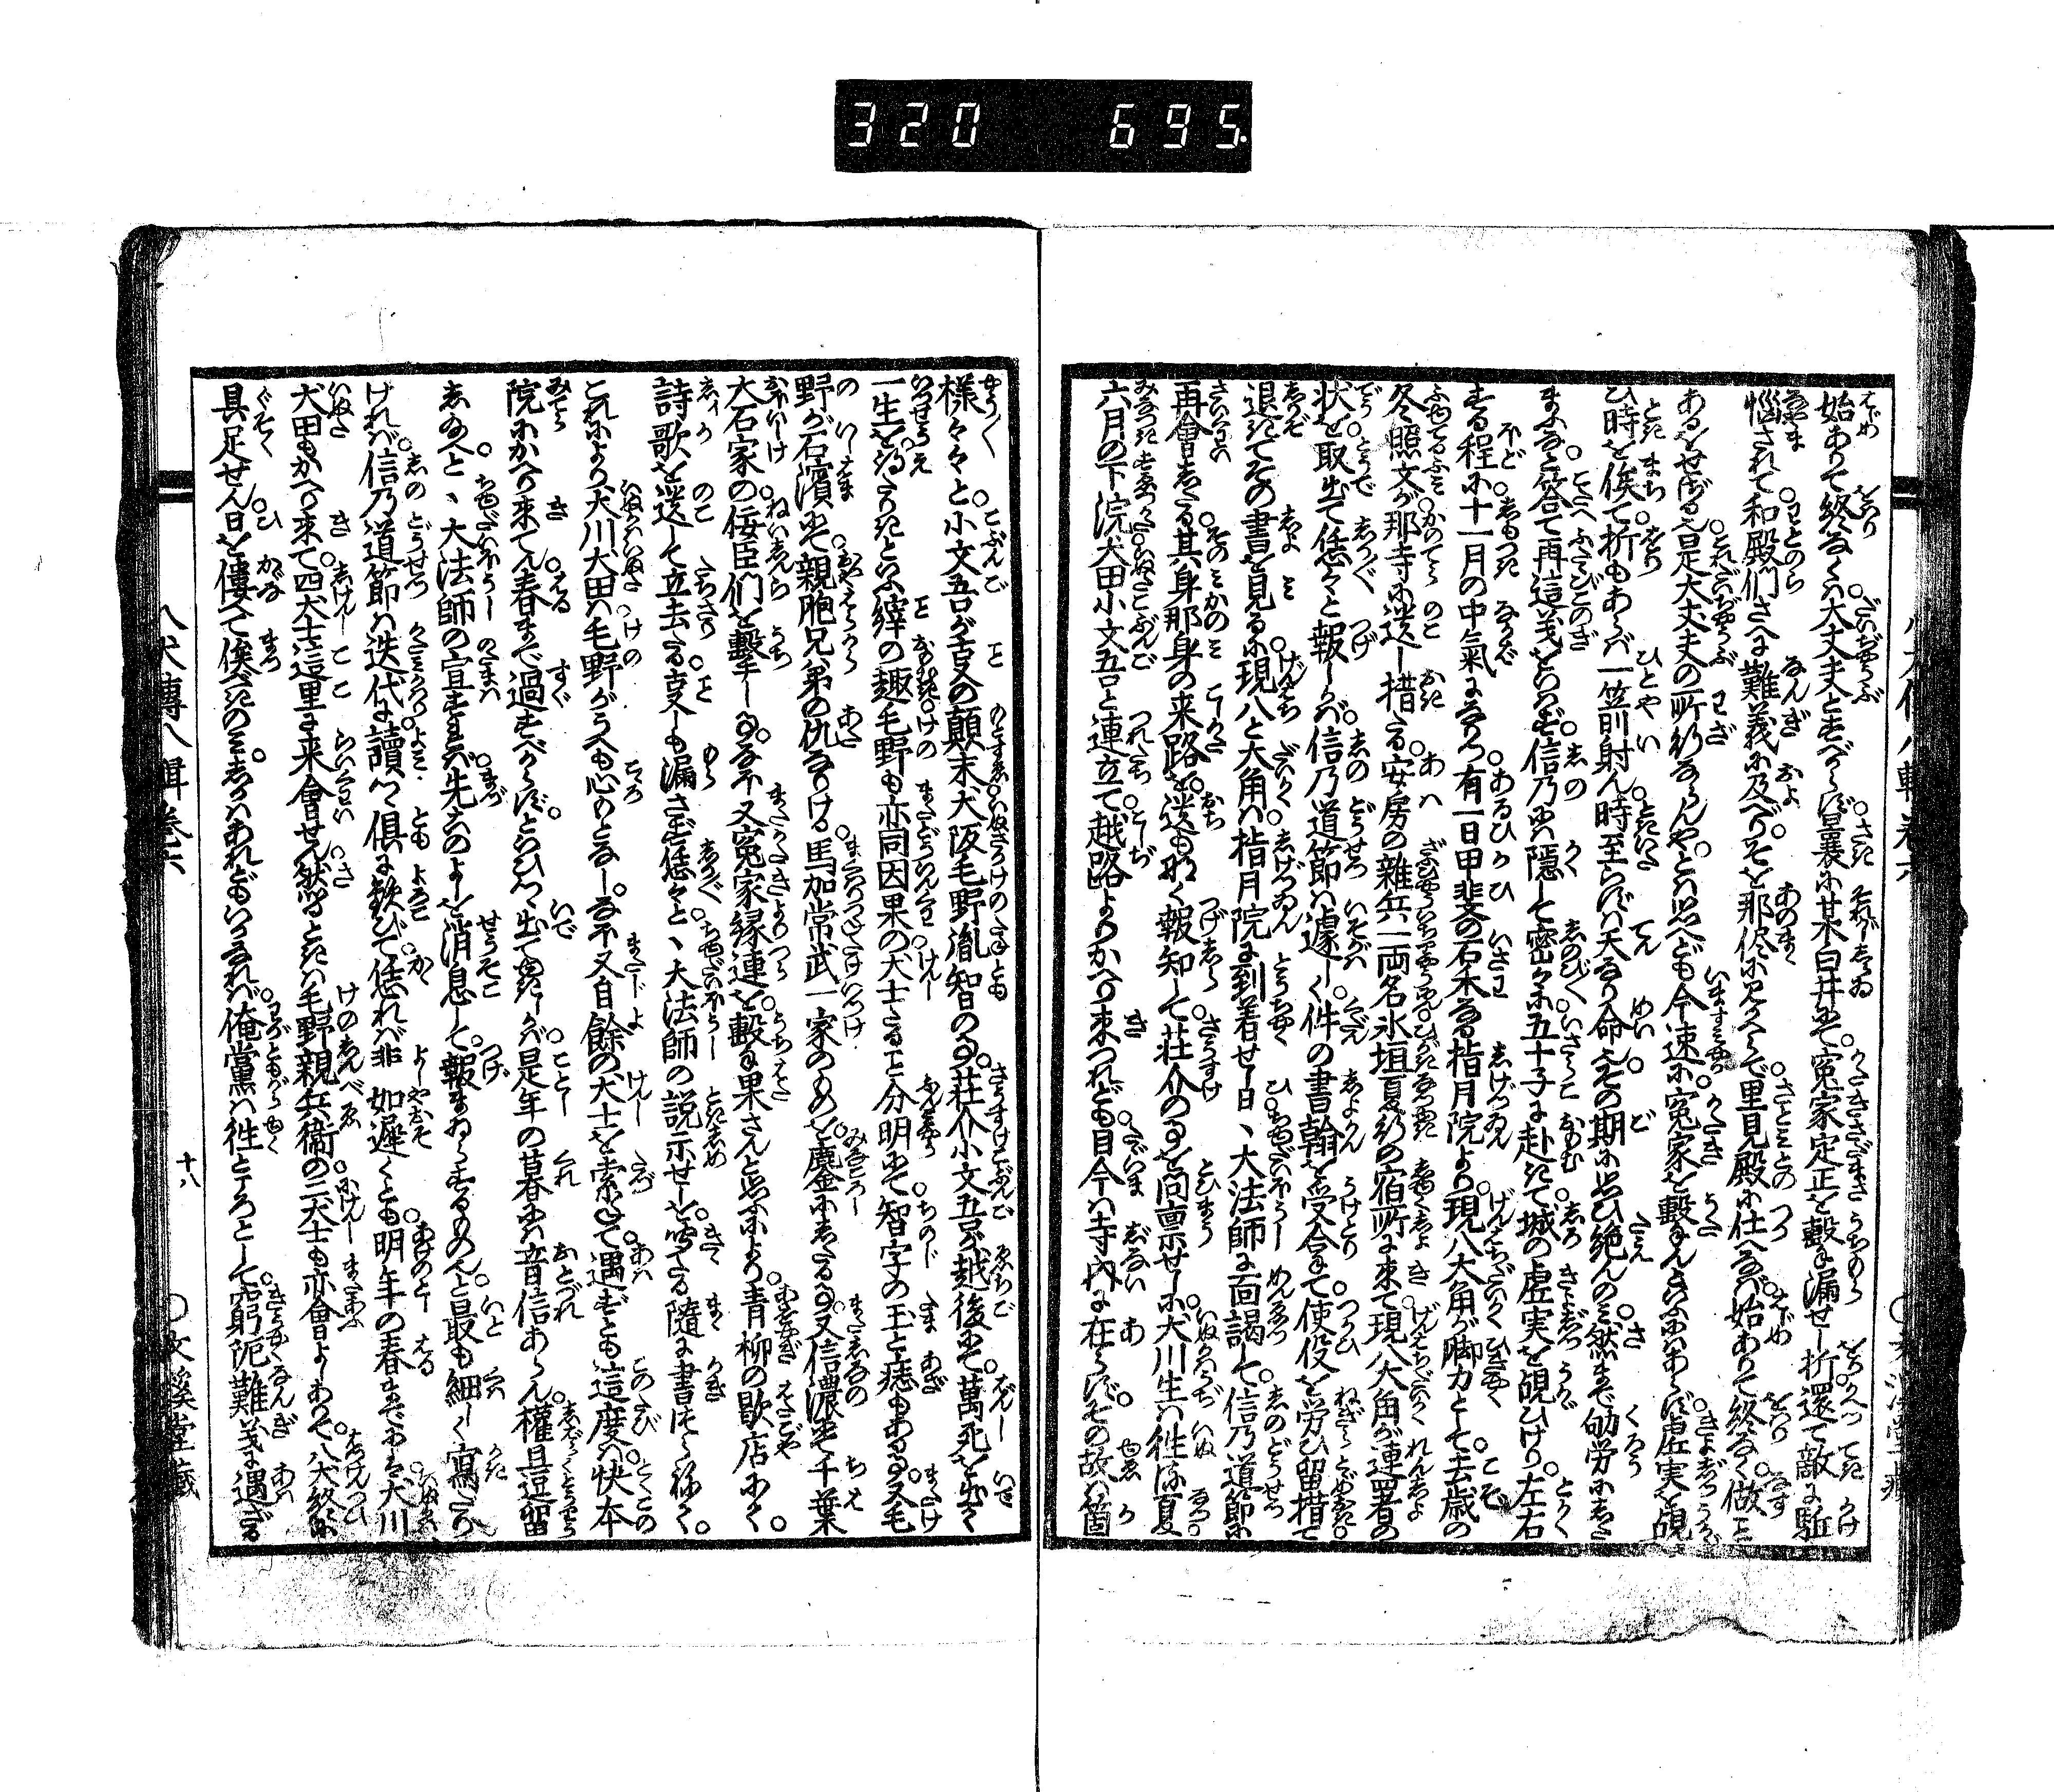 320 695
始ありて終なくハ大丈夫とすべからず曩に某白井にて寃家定正を撃も漏せし折還て敵に駈
惱されて和殿們さへに難義に及べりそを那侭に見かへらで里見殿に仕へなバ始ありて終なく做こと
あるをせざるハ是大丈夫の所行ならんやとハ思へども今速に寃家を撃んといふにハあらず虚実を覘
ひ時を俟て折もあらバ一箭射ん時至らずハ天なり命なりその期に思ひ絶んのミ然まで劬労にした
まふなと答て再這義をいはず信乃にハ隠して密々に五十子に赴きて城の虚実を覘ひけり左右
する程に十一月の中氣になりつ有一日甲斐の石禾なる指月院より現八大角が脚力とて去歳の
冬照文が那寺に遺し措たる安房の雜兵一両名氷垣夏行の宿所に来て現八大角が連署の
状を取出て恁々と報しかバ信乃道節ハ遽しく件の書翰を受合て使役を労ひ留措て
退きてその書を見るに現八と大角ハ指月院に到着せし日丶大法師に面謁して信乃道節に
再會したる其身那身の来路を遺もなく報知して荘介の事を問禀せしに犬川生ハ徃ぬる夏
六月の下浣犬田小文吾と連立て越路よりかへり来つれども目今ハ寺内に在らずその故ハ箇
樣々々と小文吾が事の顛末犬阪毛野胤智の事荘介小文吾が越後にて萬死を出て
一生を得たりきといふ縡の趣毛野も亦同因果の犬士たること分明にて智字の玉と痣もある事又毛
野が石濱にて親胞兄弟の仇なりける馬加常武一家のものを鏖にしたる事又信濃にて千葉
大石家の佞臣們を撃し事なほ又寃家縁連を撃も果さんと思ふにより青柳の歇店にて
詩歌を遺して立去たる事しも漏さず恁々と丶大法師の説示せしを聞たる隨に書つらねて
これにより犬川犬田ハ毛野がうへも心もとなしなほ又自餘の犬士を索ねて遇ずとも這度ハ快本
院にかへり来てん春まで過すべからずといひつつ出てゆきしかバ是年の暮にハ音信あらん權且逗留
しねへと丶大法師の宣まはすれバ先このよしを消息して報まゐらするものと最も細しく寫たり
けれバ信乃道節ハ迭代に讀つ倶に歓びて恁れバ非如遲くとも明年の春までにハ犬川
犬田もかへり来て四犬士這里に来會せん然るときハ毛野親兵衞の二犬士も亦會よしありて八犬終に
具足せん日を僂て俟べきのミしかハあれどもいかなれバ俺黨ハ徃ところとして窮阨難義に遇ざる
八犬傳八輯卷六
十八
文溪堂藏